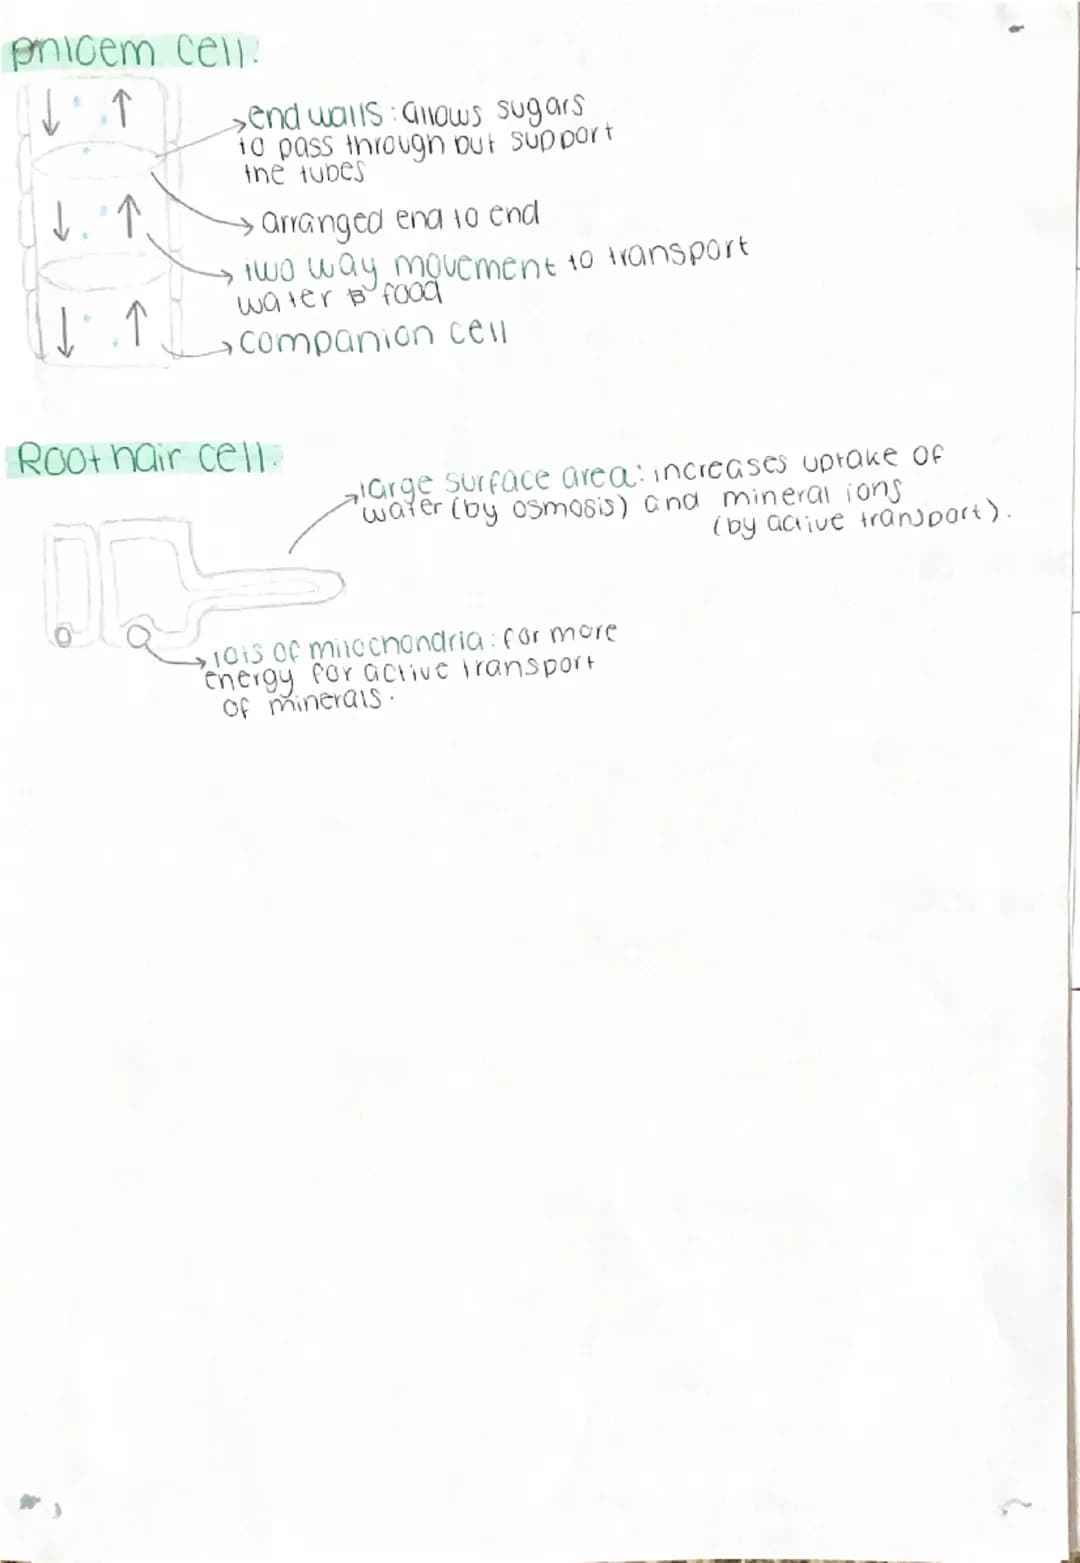 phloem cell:
end walls: allows sugars
to pass through but support
the tubes
arranged end to end
two way movement to transport
water & food
companion cell
Root hair cell:
large surface area: increases uptake of
water (by osmosis) and mineral ions
(by active transport).
lots of mitochondria: for more
energy for active transport
of minerals.